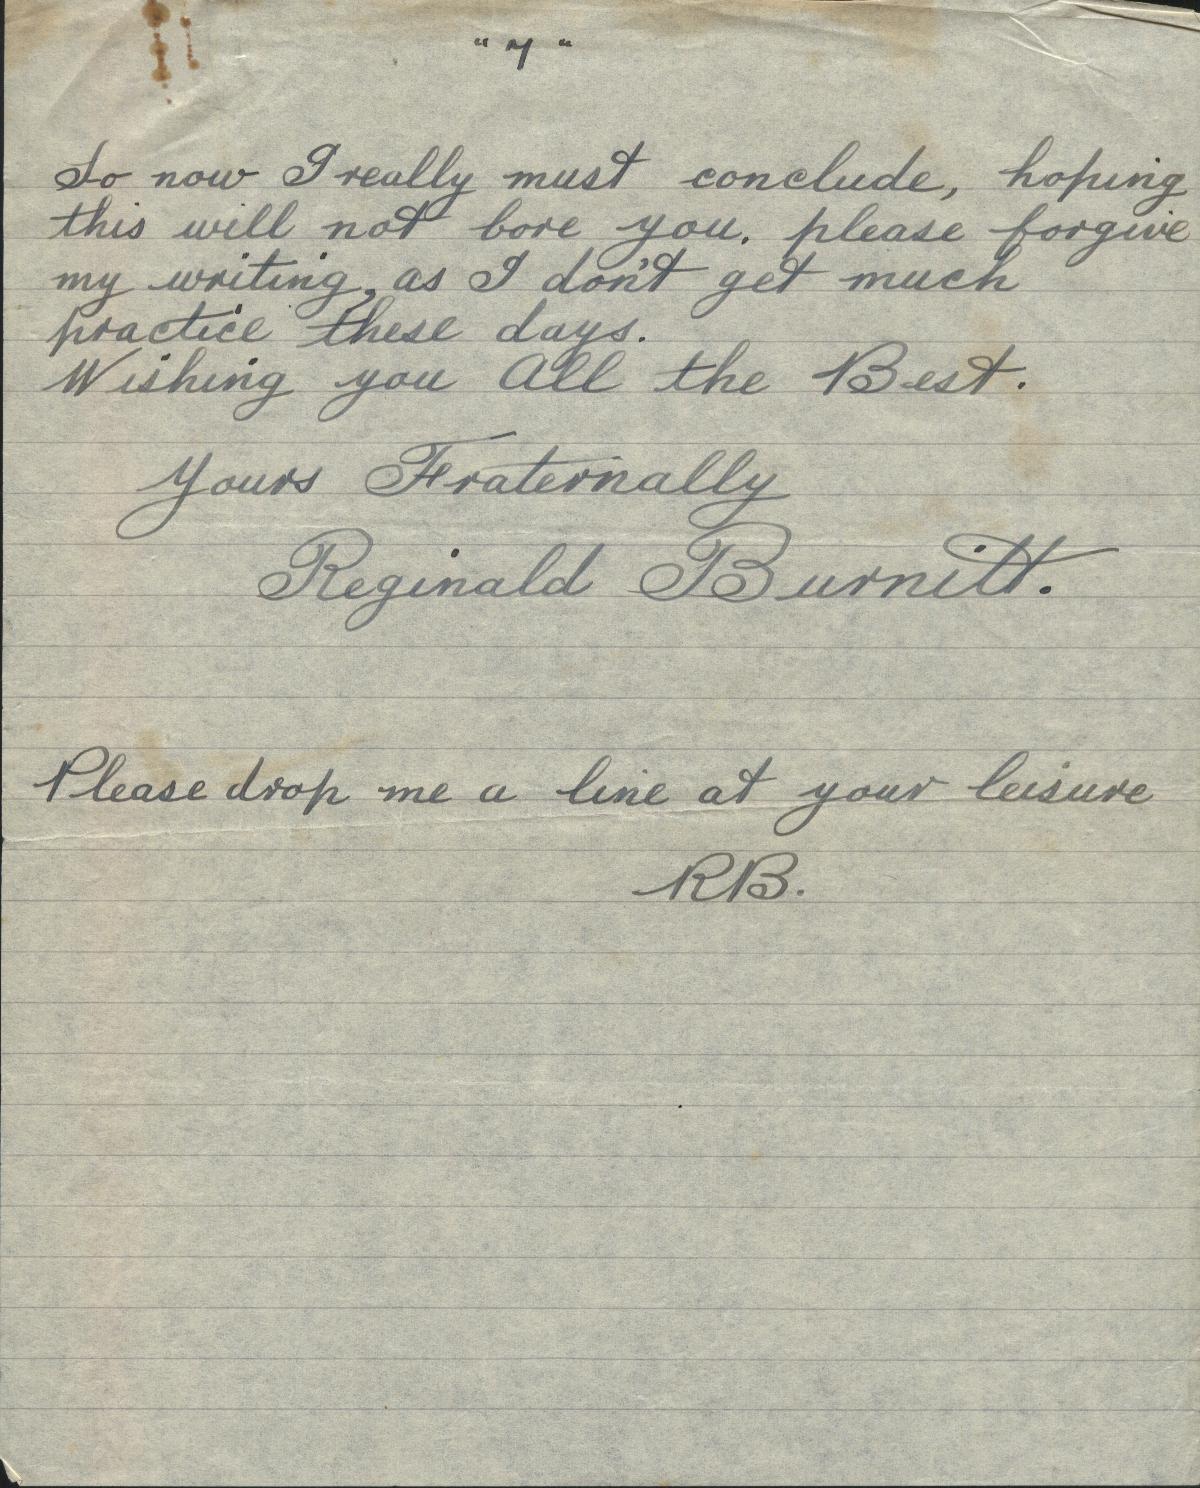 " 7 "
So now I really must conclude, hoping
this will not bore you. please forgive
my writing, as I don't get much
practice these days.
Wishing you All the Best.
Yours Fraternally
Reginald Burnitt.
Please drop me a line at your leisure
RB.